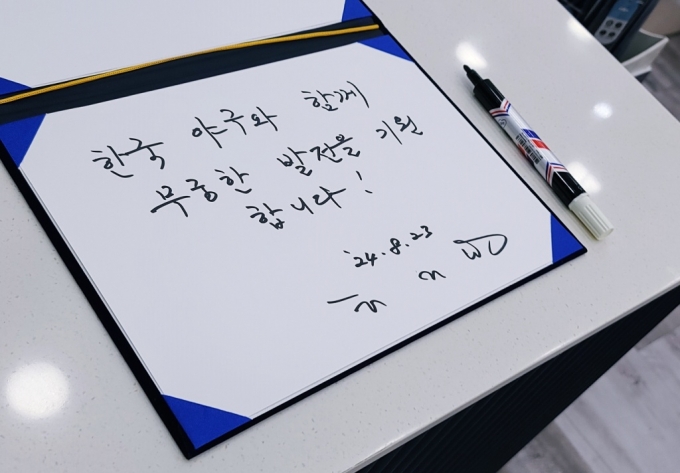 한국 야구와 함께
무궁한 발전을 기원
합니다!
'24.8.23